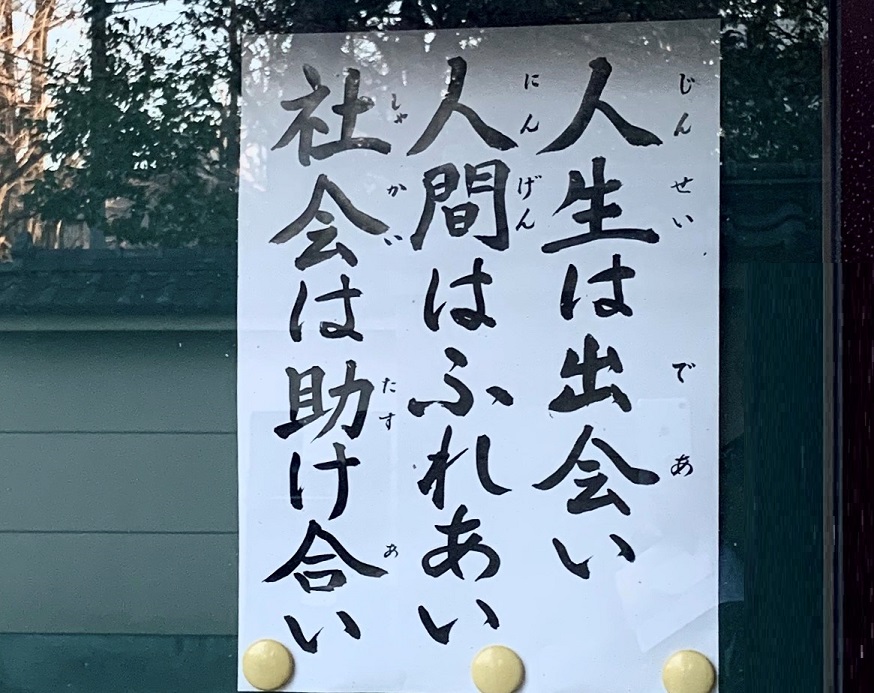 人生は出会い
人間はふれあい
社会は助け合い